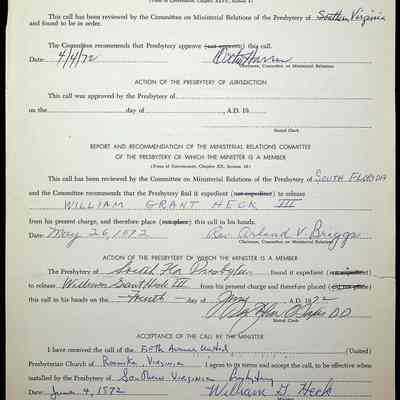 This call has been reviewed by the Committee on Ministerial Relations of the Presbytery of Southern Virginia
and found to be in order.
The Committee recommends that Presbytery approve (not approve) this call.
Date: 4/4/72
Chairman, Committee on Ministerial Relations
ACTION OF THE PRESBYTERY OF JURISDICTION
This call was approved by the Presbytery of
on the day of , A.D. 19
Stated Clerk
REPORT AND RECOMMENDATION OF THE MINISTERIAL RELATIONS COMMITTEE
OF THE PRESBYTERY OF WHICH THE MINISTER IS A MEMBER
This call has been reviewed by the Committee on Ministerial Relations of the Presbytery of SOUTH FLORIDA
and the Committee recommends that the Presbytery find it expedient (not expedient) to release
WILLIAM GRANT HECK III
from his present charge, and therefore place (not place) this call in his hands.
Date: May 26, 1972 Rev. Orland V. Briggs
Chairman, Committee on Ministerial Relations
ACTION OF THE PRESBYTERY OF WHICH THE MINISTER IS A MEMBER
The Presbytery of South Fla Presbytery found it expedient (not expedient)
to release William Grant Heck III from his present charge and therefore placed (not place)
this call in his hands on the day of A.D. 1972
D.D
Stated Clerk
ACCEPTANCE OF THE CALL BY THE MINISTER
I have received the call of the Fifth Avenue United (United)
Presbyterian Church of Roanoke, Virginia. I agree to its terms and accept the call, to be effective when
installed by the Presbytery of Southern Virginia Presbytery
Date: June 4, 1972 William G. Heck